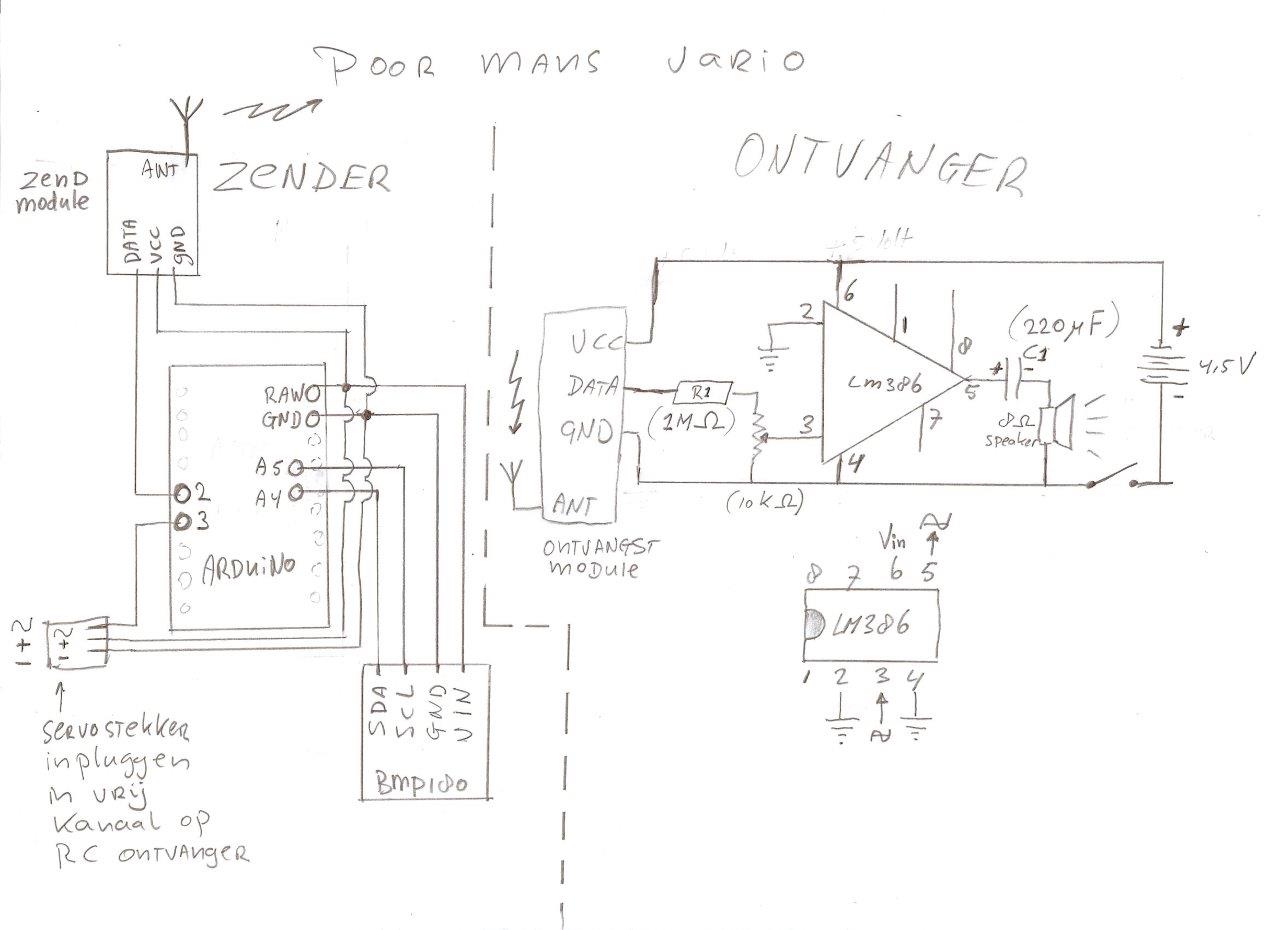 POOR MANS VARIO
ZENDER
ZEND
module
ANT
DATA
VCC
GND
RAW
GND
A5
A4
2
3
ARDUiNO
- + ∿
- + ∿
SERVOSTEKKER
inpluggen
in VRij
Kanaal op
RC ONTVANGER
SDA
SCL
GND
VIN
BMP180
ONTVANGER
VCC
DATA
GND
ANT
ONTVANGST
module
R1
(1MΩ)
(10KΩ)
2
3
6
1
8
7
4
5
LM386
(220µF)
+ C1 -
8Ω
speaker
+
4,5V
-
Vin
8 7 6 5
LM386
1 2 3 4